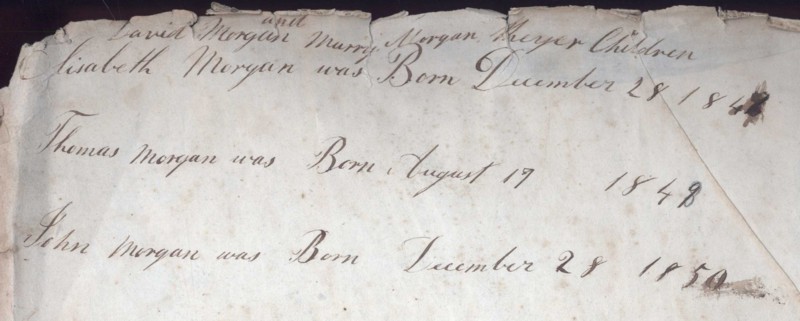 David Morgan and Marry Morgan Theyer Children
Elisabeth Morgan was Born December 28 184
Thomas Morgan was Born August 19 1848
John Morgan was Born December 28 1850